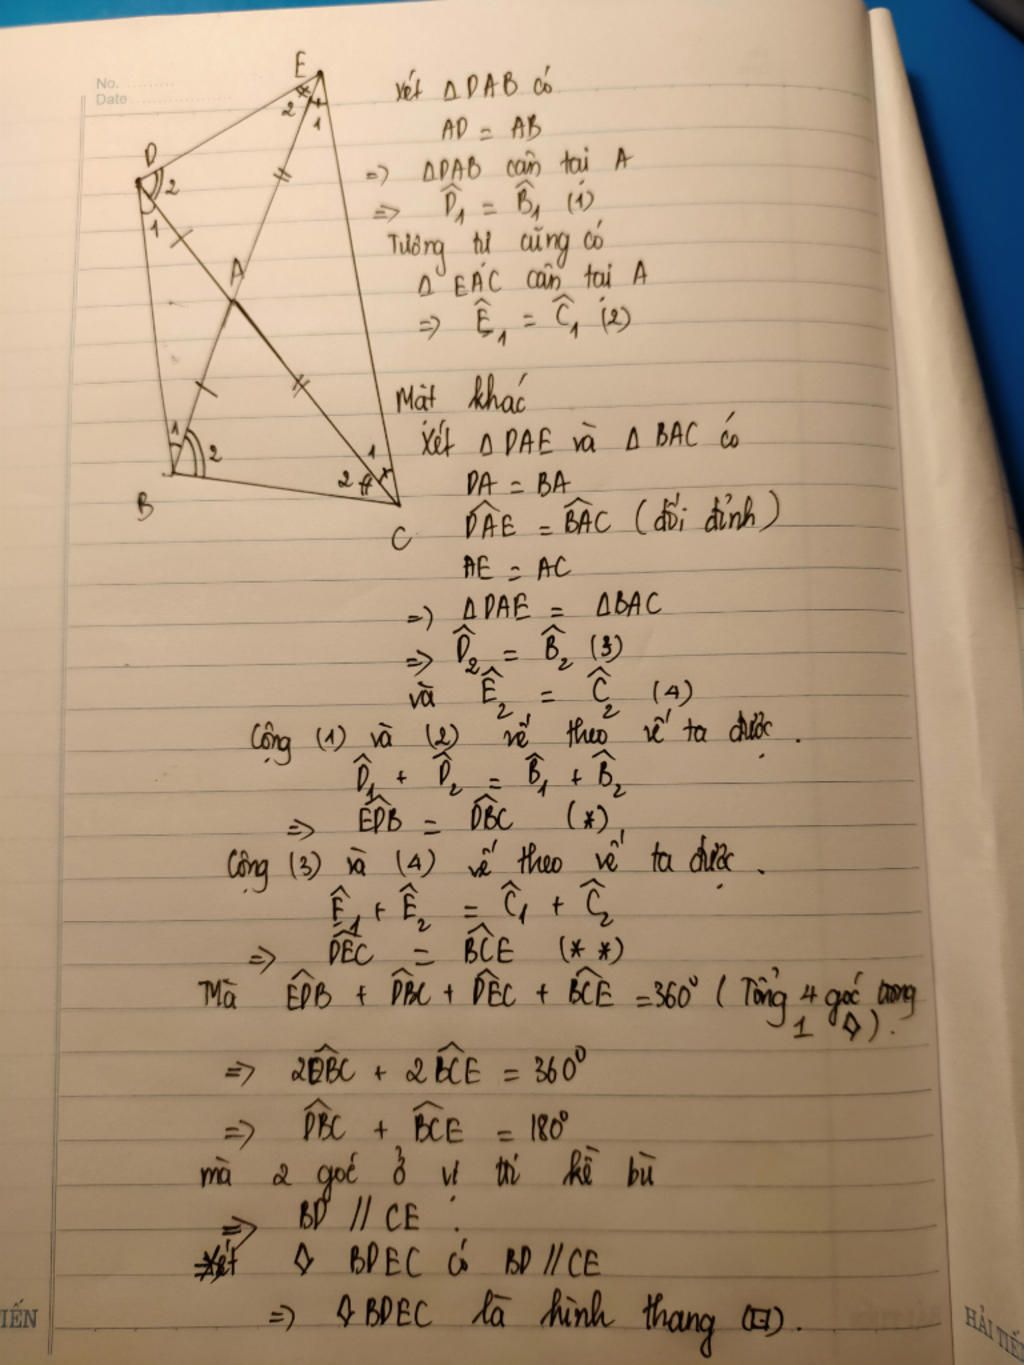 No.
Date
E
2
1
D
2
1
A
1
2
B
1
2
C
xét ΔDAB có
AD = AB
=> ΔDAB cân tại A
=> D̂₁ = B̂₁ (1)
Tương tự cũng có
Δ EAC cân tại A
=> Ê₁ = Ĉ₁ (2)
Mặt khác
Xét ΔDAE và ΔBAC có
DA = BA
D̂AE = B̂AC (đối đỉnh)
AE = AC
=> ΔDAE = ΔBAC
=> D̂₂ = B̂₂ (3)
và Ê₂ = Ĉ₂ (4)
Cộng (1) và (2) vế theo vế ta được.
D̂₁ + D̂₂ = B̂₁ + B̂₂
=> ÊDB = D̂BC (*)
Cộng (3) và (4) vế theo vế ta được.
Ê₁ + Ê₂ = Ĉ₁ + Ĉ₂
=> D̂EC = B̂CE (* *)
Mà ÊDB + D̂BC + D̂EC + B̂CE = 360⁰ (Tổng 4 góc trong
1 ◊).
=> 2D̂BC + 2B̂CE = 360⁰
=> D̂BC + B̂CE = 180⁰
mà 2 góc ở vị trí kề bù
=> BD // CE.
Xét ◊ BDEC có BD // CE
=> ◊BDEC là hình thang (□).
TIẾN
HẢI TIẾ